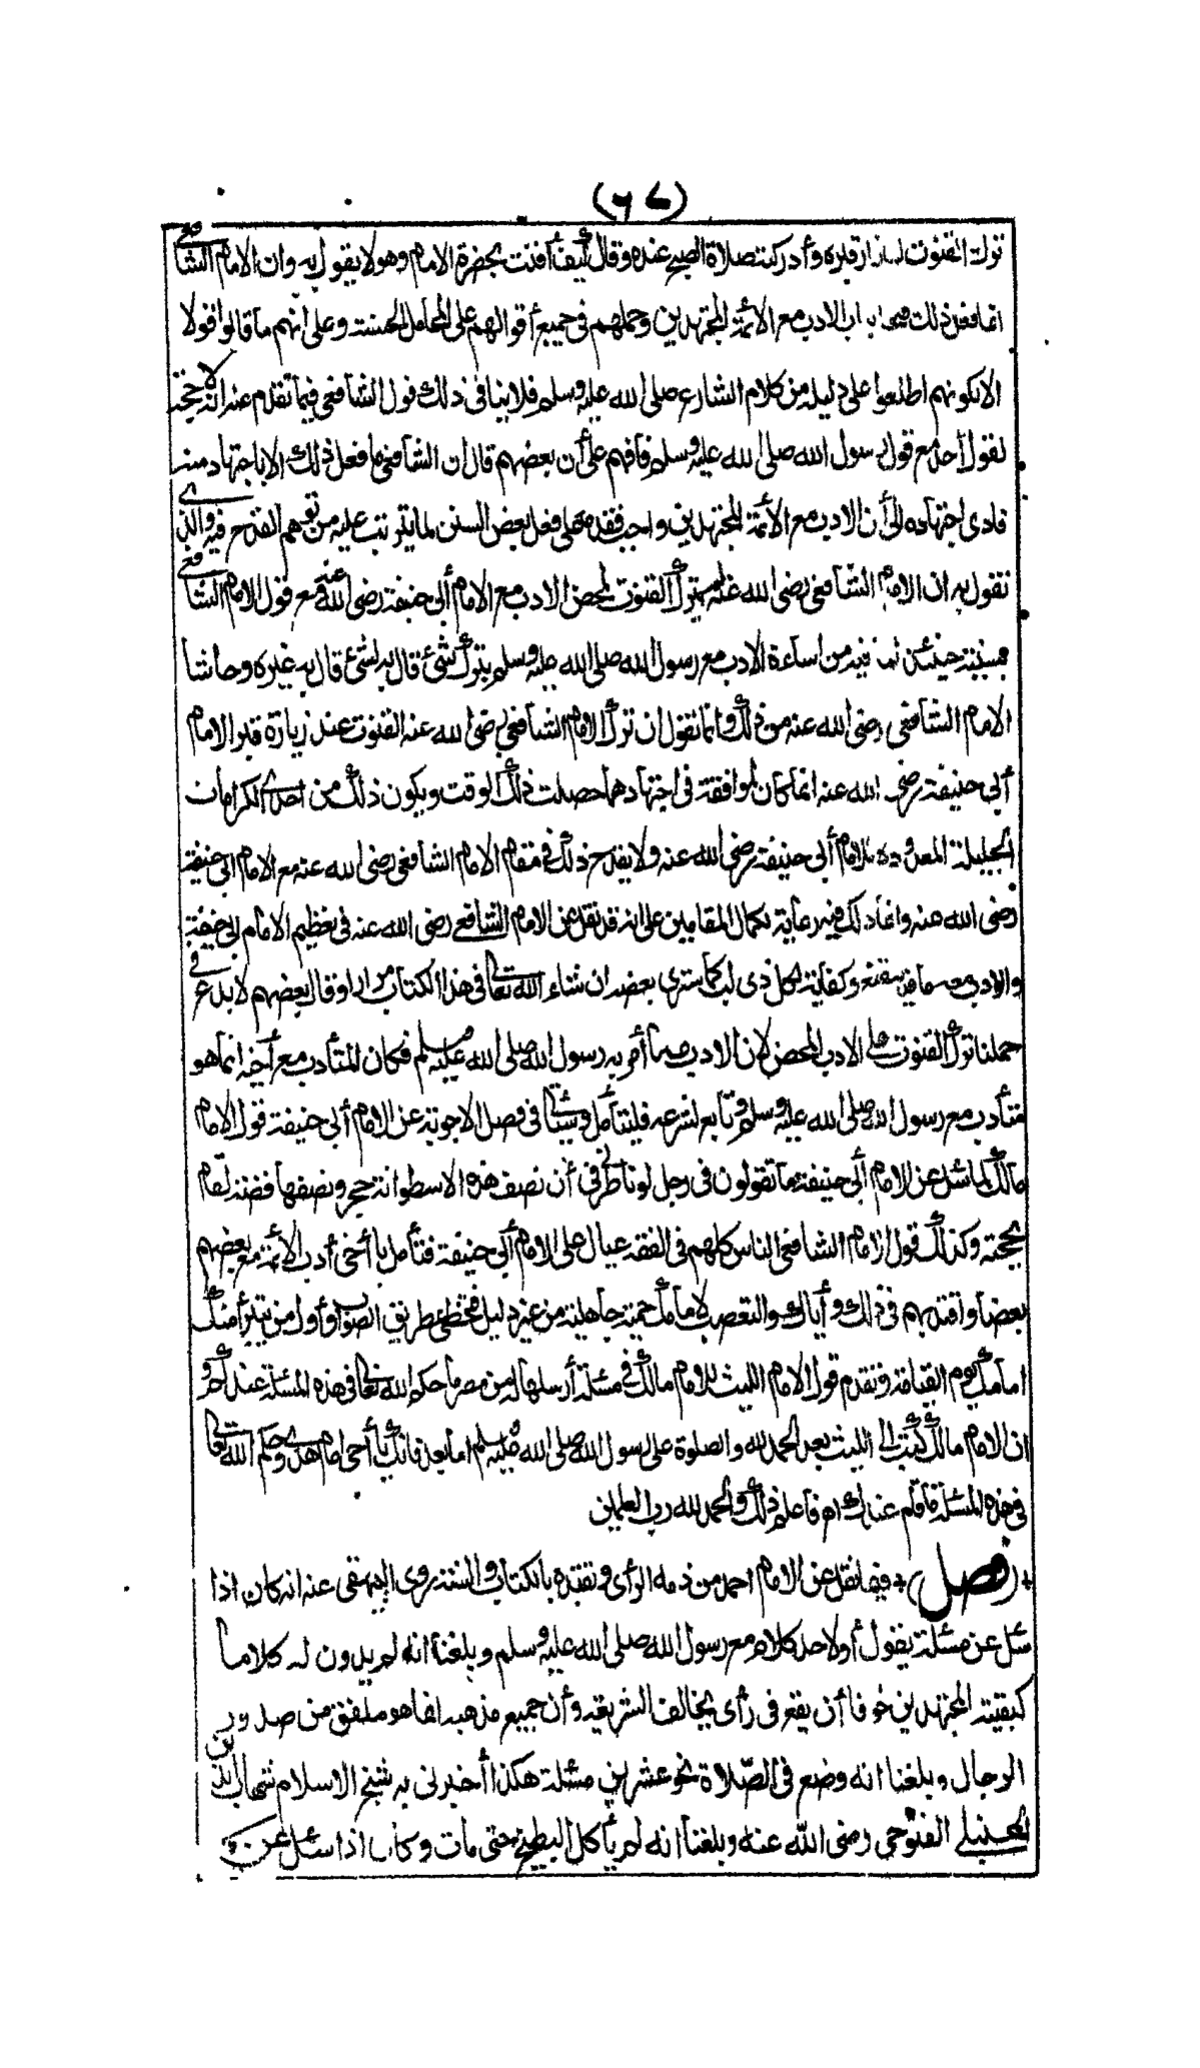 (٦٧)
ترك القنوت لما زار قبره وأدركته صلاة الصبح عنده وقال كيف أقنت بحضرة الامام وهو لا يقول به وان الامام الشافعي
انما فعل ذلك فتحا باب الادب مع الائمة المجتهدين وحملهم في جميع أقوالهم على المحامل الحسنة وعلى أنهم ما قالوا قولا
الا لكونهم اطلعوا على دليله من كلام الشارع صلى الله عليه وسلم فلا ينافى ذلك قول الشافعي فيما تقدم عنه انه لا حجة
لقول أحد مع قول رسول الله صلى الله عليه وسلم فافهم على أن بعضهم قال ان الشافعي ما فعل ذلك الا باجتهاد منه
فادى اجتهاده الى أن الادب مع الأئمة المجتهدين واجب فقدمه على فعل بعض السنن لما يترتب عليه من توهم القدح فيه والذى
نقول به ان الامام الشافعي رضى الله عنه لم يترك القنوت لمحض الادب مع الامام أبى حنيفة رضى الله عنه مع قول الامام الشافعي
بسنيته حينئذ لما فيه من اساءة الادب مع رسول الله صلى الله عليه وسلم بترك شئ قال به لشئ قال به غيره وحاشا
الامام الشافعي رضى الله عنه من ذلك وانما نقول ان ترك الامام الشافعي رضى الله عنه القنوت عند زيارة قبر الامام
أبي حنيفة رضى الله عنه انما كان لموافقة فى اجتهادهما حصلت ذلك الوقت ويكون ذلك من احدى الكرامات
الجليلة المعدودة للامام أبى حنيفة رضى الله عنه ولا يقدح ذلك فى مقام الامام الشافعي رضى الله عنه مع الامام ابى حنيفة
رضى الله عنه وانما ذلك فيه رعاية لكمال المقامين على انه قد نقل عن الامام الشافعى رضى الله عنه فى تعظيم الامام ابى حنيفة
والادب معه ما فيه مقنع وكفاية لكل ذى لب كما سترى بعضه ان شاء الله تعالى فى هذا الكتاب مرارا وقال بعضهم لا بدع فى
حملنا ترك القنوت على الادب المحض لان الادب مما أمر به رسول الله صلى الله عليه وسلم فكان المتأدب مع أخيه انما هو
متأدب مع رسول الله صلى الله عليه وسلم وتابع لشرعه فليتأمل وسيأتى فى فصل الاجوبة عن الامام أبى حنيفة قول الامام
مالك لما سئل عن الامام أبى حنيفة ما تقولون فى رجل لو ناظرنى فى أن نصف هذه الاسطوانة حجر ونصفها فضة لقام
بحجته وكذلك قول الامام الشافعى الناس كلهم فى الفقه عيال على الامام أبى حنيفة فتأمل يا أخى أدب الأئمة مع بعضهم
بعضا واقتد بهم فى ذلك وأياك والتعصب لامامك حمية جاهلية من غير دليل فتخطئ طريق الصواب وأول من يتبرأ منك
امامك يوم القيامة وتقدم قول الامام الليث للامام مالك فى مسئلة أرسلها له من مصر ما حكم الله تعالى فى هذه المسئلة عندكم و
ان الامام مالك كتب الى الليث بعد الحمد لله والصلوة على رسول الله صلى الله عليه وسلم اما بعد فانك يا أخى امام هدى وحكم الله تعالى
فى هذه المسئلة ما قام عندك اه فاعلم ذلك والحمد لله رب العلمين
+(فصل)+ فيما نقل عن الامام احمد من ذمه الرأى وتقيده بالكتاب والسنة روى البيهقى عنه انه كان اذا
سئل عن مسئلة يقول أو لاحد كلام مع رسول الله صلى الله عليه وسلم وبلغنا انه لم يدون له كلاما
كبقية المجتهدين خوفا أن يقع فى رأى يخالف الشريعة وأن جميع مذهبه انما هو ملفق من صدور
الرجال وبلغنا انه وضع فى الصلاة نحو عشرين مسئلة هكذا أخبرنى به شيخ الاسلام شهاب الدين
الحنبلي الفتوحى رضى الله عنه وبلغنا انه لم يأكل البطيخ حتى مات وكان اذا سئل عن